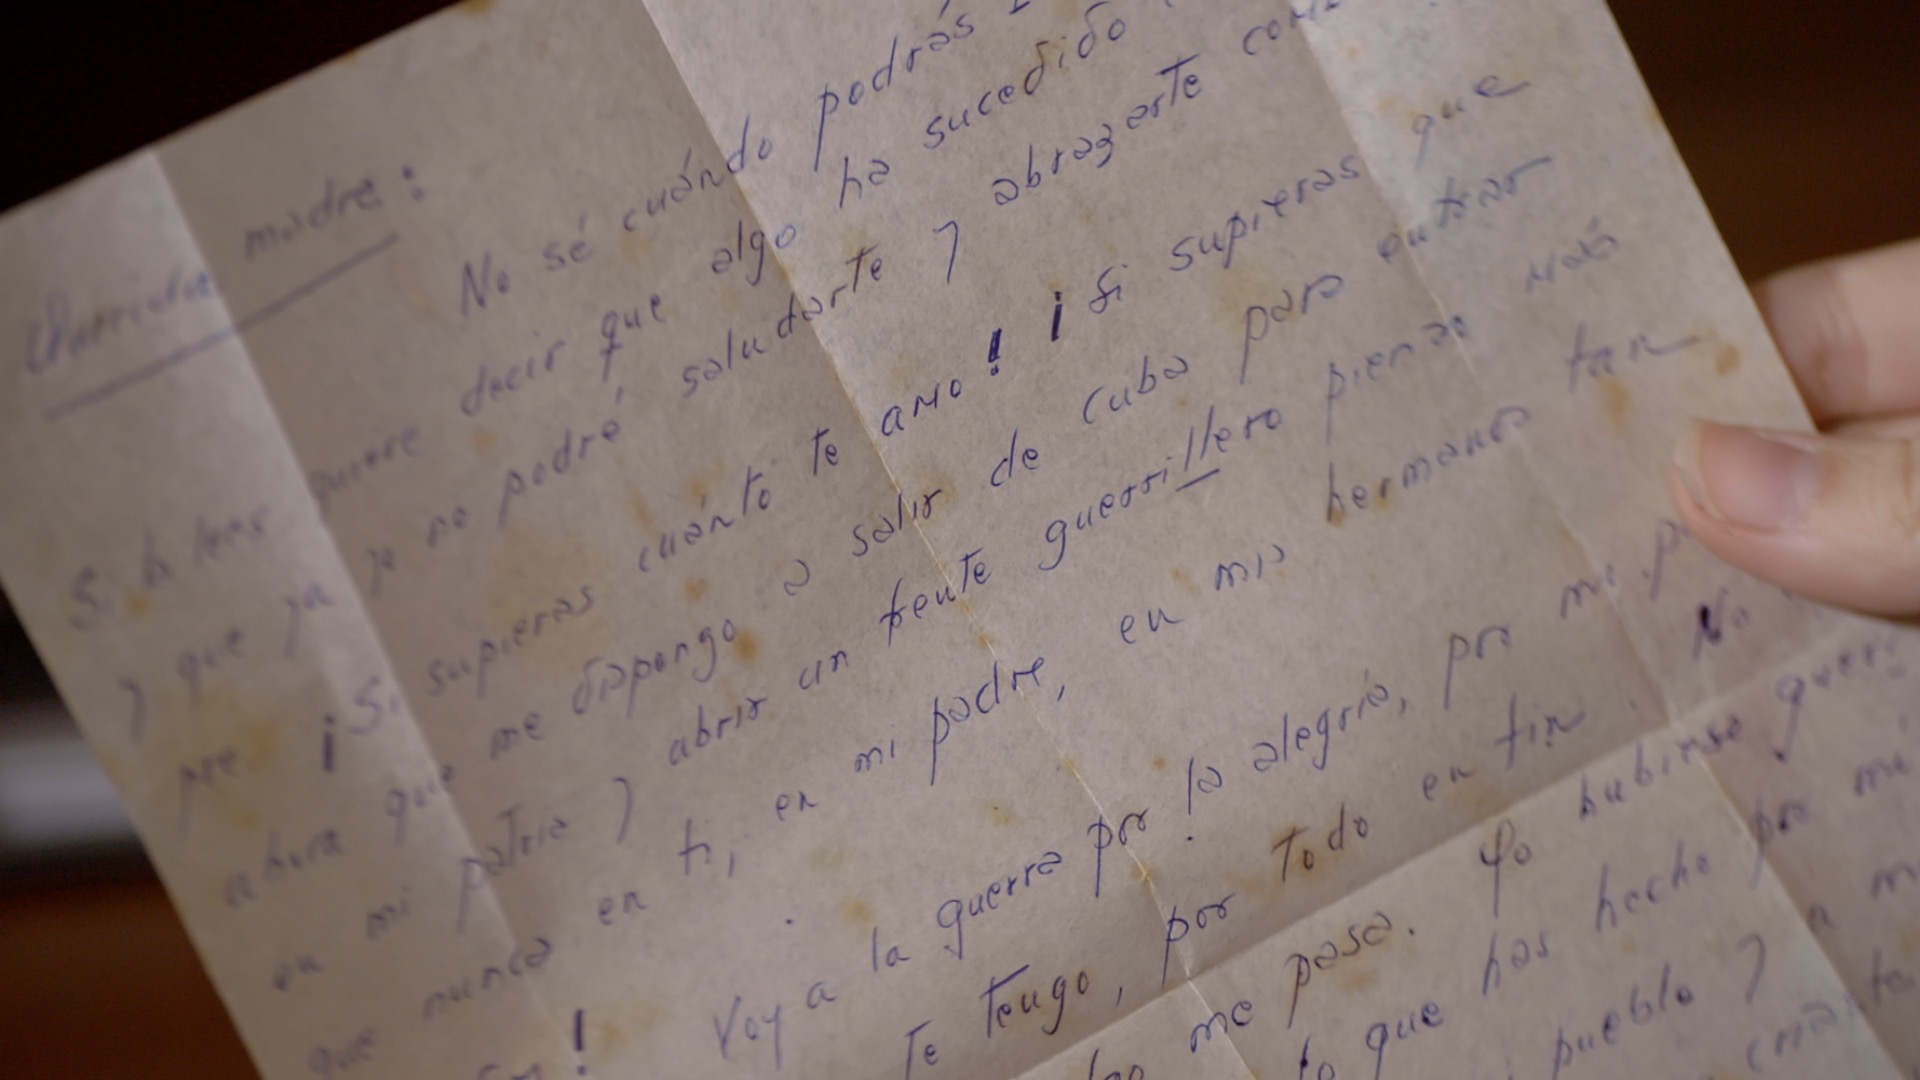 Querida madre:
No sé cuándo podrás
Si la lees quiere decir que algo ha sucedido
y que ya yo no podré saludarte y abrazarte
pre ¡Si supieras cuánto te amo! ¡Si supieras que
ahora que me dispongo a salir de Cuba para entrar
en mi patria y abrir un frente guerrillero pienso más
que nunca en ti, en mi padre, en mis hermanos tan
! Voy a la guerra por la alegría, por mi
te tengo, por todo en fin. No
me pasa. Yo hubiese
lo que has hecho por mí
pueblo y a